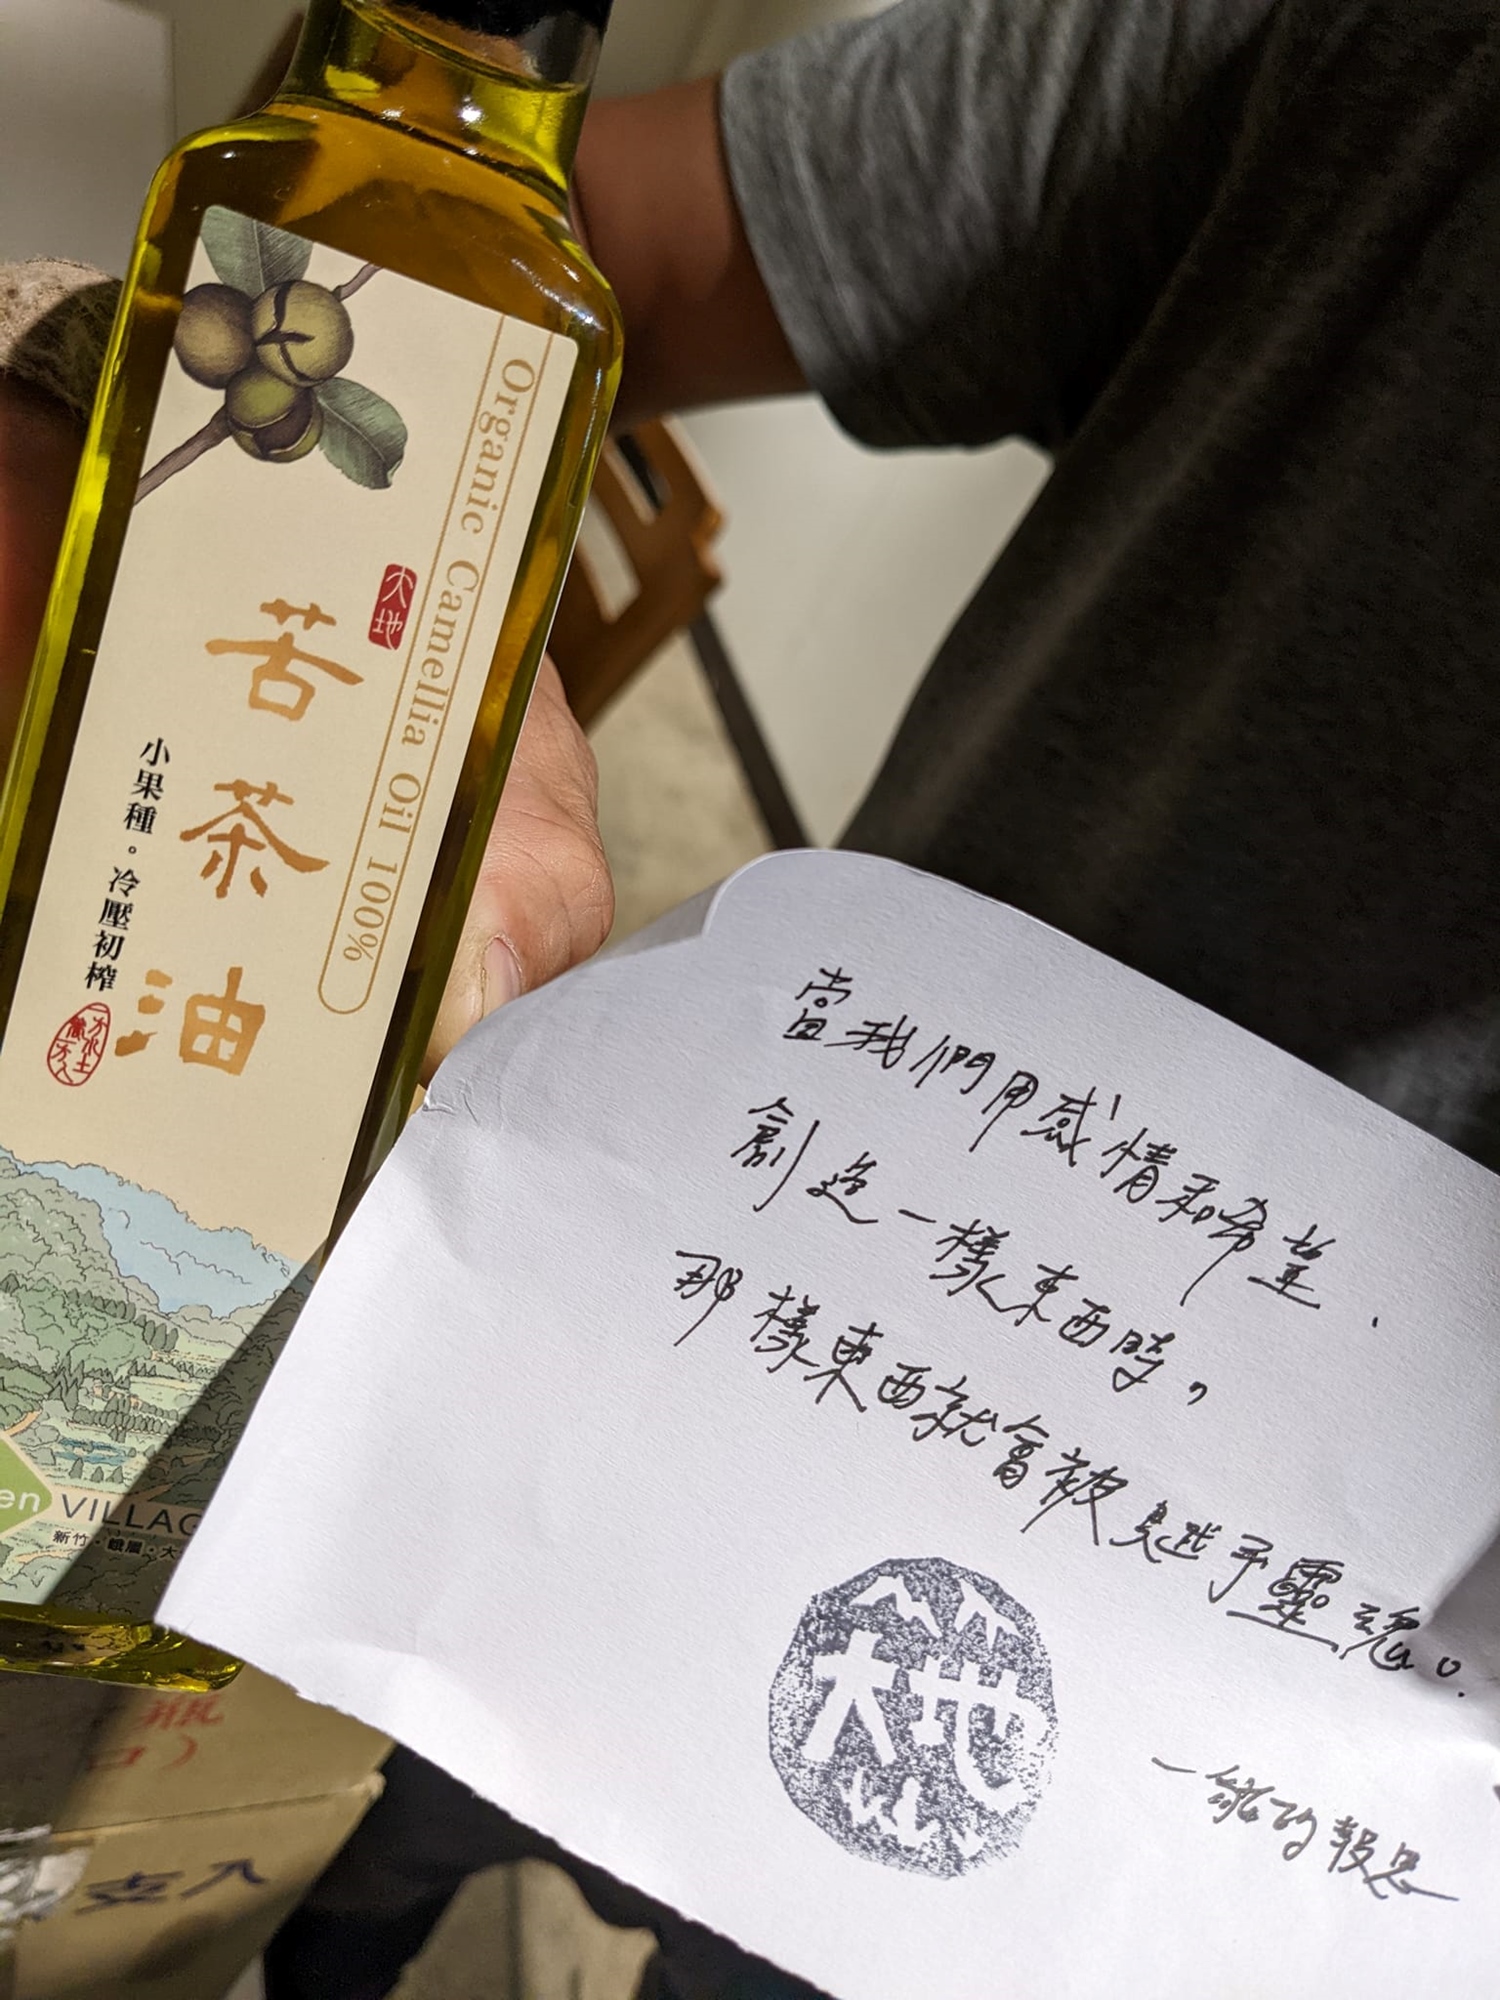 Organic Camellia Oil 100%
大地
苦茶油
小果種。冷壓初榨
一方水土
養一方人
en VILLAG
新竹·峨眉·大
當我們用感情和希望.
創造一樣東西時,
那樣東西就會被賦予靈魂。
大地
一鶴的報恩
瓶
口)